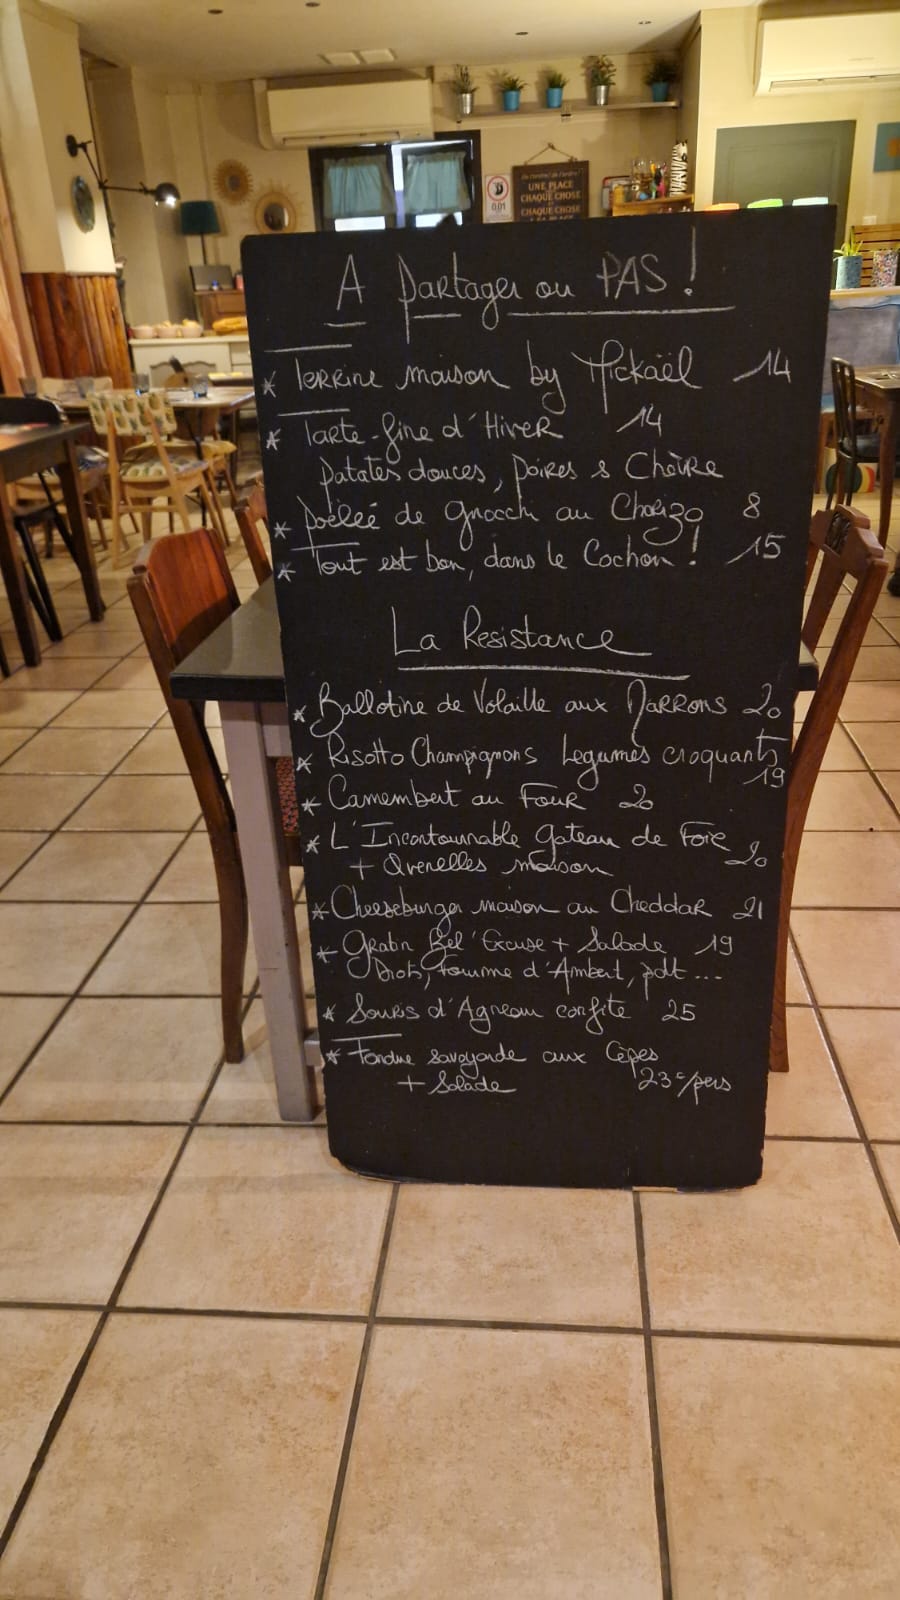 UNE PLACE
CHAQUE CHOSE
CHAQUE CHOSE
A Partager ou PAS !
* Terrine maison by Mickaël 14
* Tarte fine d'Hiver 14
Patates douces, Poires & Chèvre
* Poêlée de gnocchi au Chorizo 8
* Tout est bon, dans le Cochon ! 15
La Resistance
* Ballotine de Volaille aux Marrons 20
* Risotto Champignons Legumes croquants
19
* Camembert au Four 20
* L'Incontournable gateau de Foie
20
+ Quenelles maison
* Cheeseburger maison au Cheddar 21
* Gratin Bel'Excuse + Salade 19
Diots, Fourme d'Ambert, pdt ...
* Souris d'Agneau confite 25
* Fondue savoyarde aux Cèpes
+ Salade 23€/pers